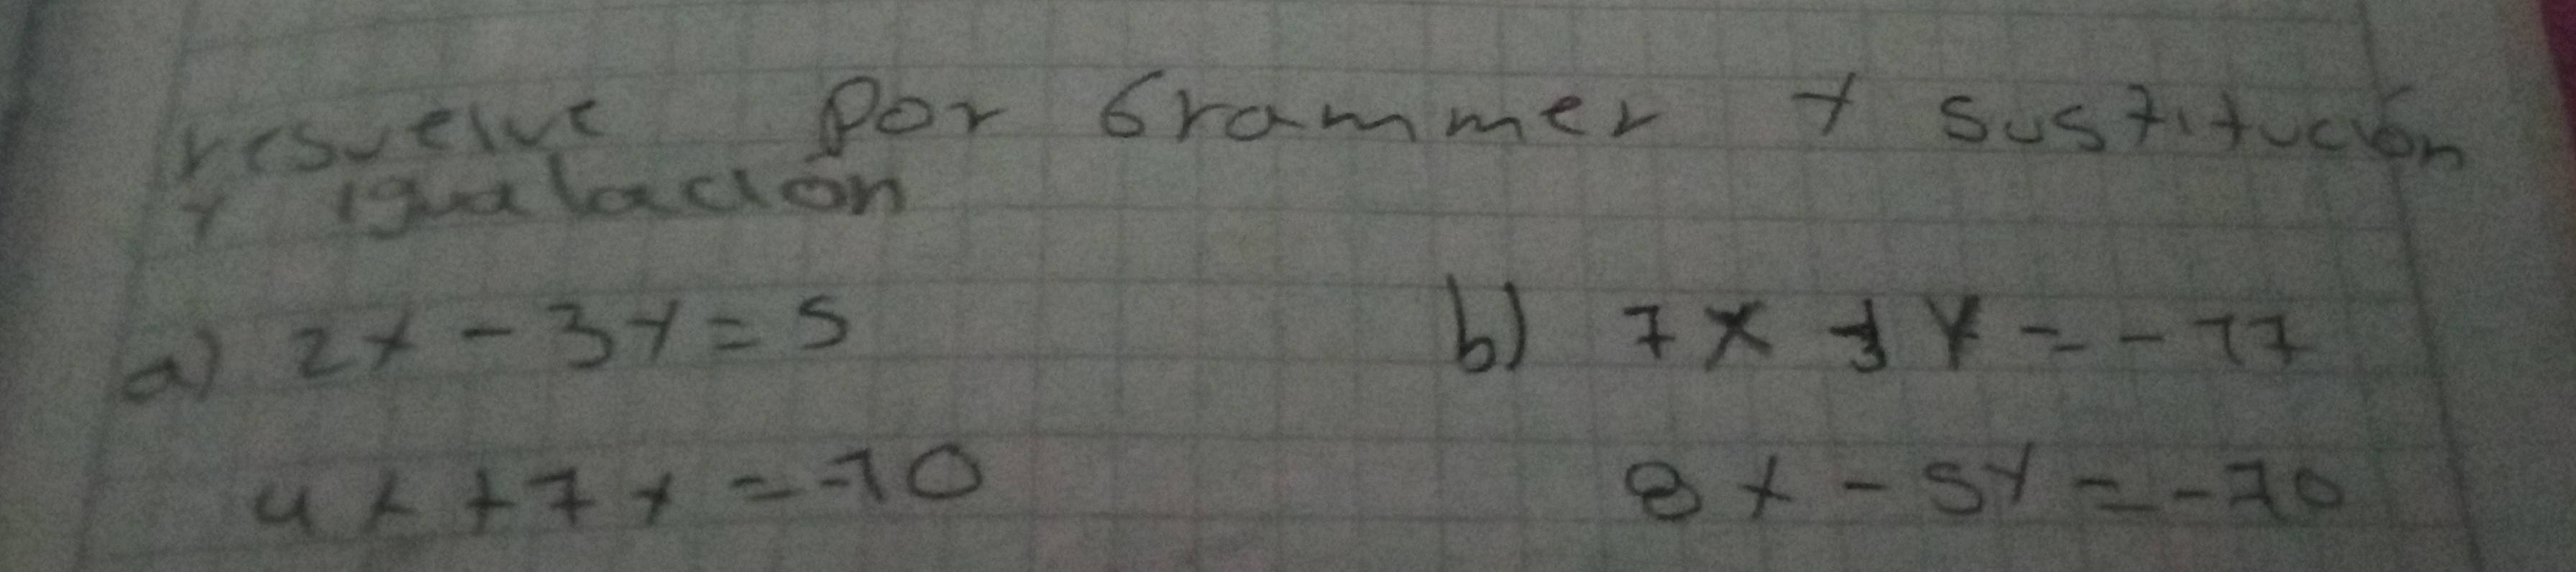 resuelve por Grammer y sustitución
y igualación
a) 2x - 3y = 5 b) 7x - 3y = - 17
4x + 7y = -10 8x - 5y = - 20